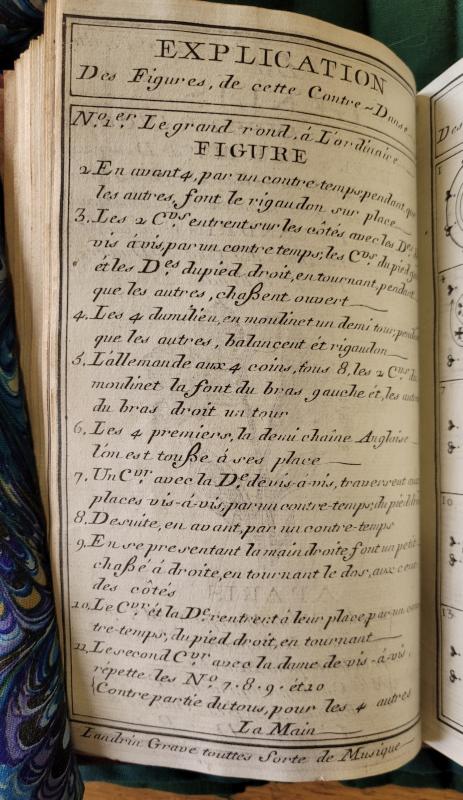 EXPLICATION
Des Figures, de cette Contre-Danse
N.º 1.er Le grand rond, á L'ordinaire
FIGURE
2. En avant 4, par un contre-temps, pendant que
les autres, font le rigaudon sur place
3. Les 2 C.vrs entrent sur les côtés avec les D.es
vis á vis, par un contre temps; les C.vrs du pied
ét les D.es du pied droit, en tournant, pendant
que les autres, chaßent ouvert
4. Les 4 dumilieu, en moulinet un demi tour; pendant
que les autres, balancent ét rigaudon
5. L'allemande aux 4 coins, tous 8, les 2 C.vrs du
moulinet la font du bras gauche ét, les autres
du bras droit un tour
6. Les 4 premiers, la demi chaîne Anglaise
l'ón est toußé á ses place
7. Un C.vr avec la D.e de vis-á-vis, traversent aux
places vis-á-vis, par un contre-temps; du pied
8. Desuite, en avant, par un contre-temps
9. En se presentant la main droite font un petit
chaßé á droite, en tournant le dos, aux
des côtés
10. Le C.vr ét la D.e rentrent á leur place par un con
tre-temps, du pied droit, en tournant
11. Le second C.vr avec la dame de vis-á-vis,
répette les N.º 7. 8. 9. ét 10
Contre partie du tous, pour les 4 autres
La Main
Landrin Grave touttes Sorte de Musique
Des
1
4
7
10
13